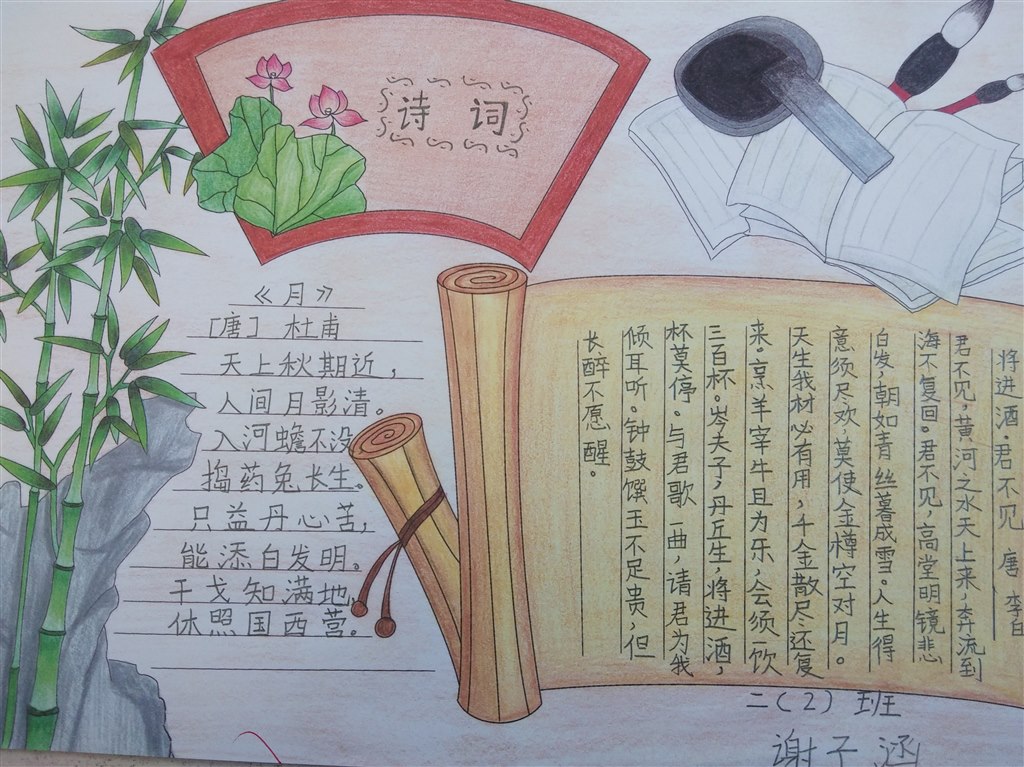 诗 词
《月》
[唐] 杜甫
天上秋期近，
人间月影清。
入河蟾不没
捣药兔长生。
只益丹心苦，
能添白发明。
干戈知满地，
休照国西营。
将进酒·君不见 唐 李白
君不见，黄河之水天上来，奔流到
海不复回。君不见，高堂明镜悲
白发，朝如青丝暮成雪。人生得
意须尽欢，莫使金樽空对月。
天生我材必有用，千金散尽还复
来。烹羊宰牛且为乐，会须一饮
三百杯。岑夫子，丹丘生，将进酒，
杯莫停。与君歌一曲，请君为我
倾耳听。钟鼓馔玉不足贵，但
长醉不愿醒。
二(2) 班
谢子涵